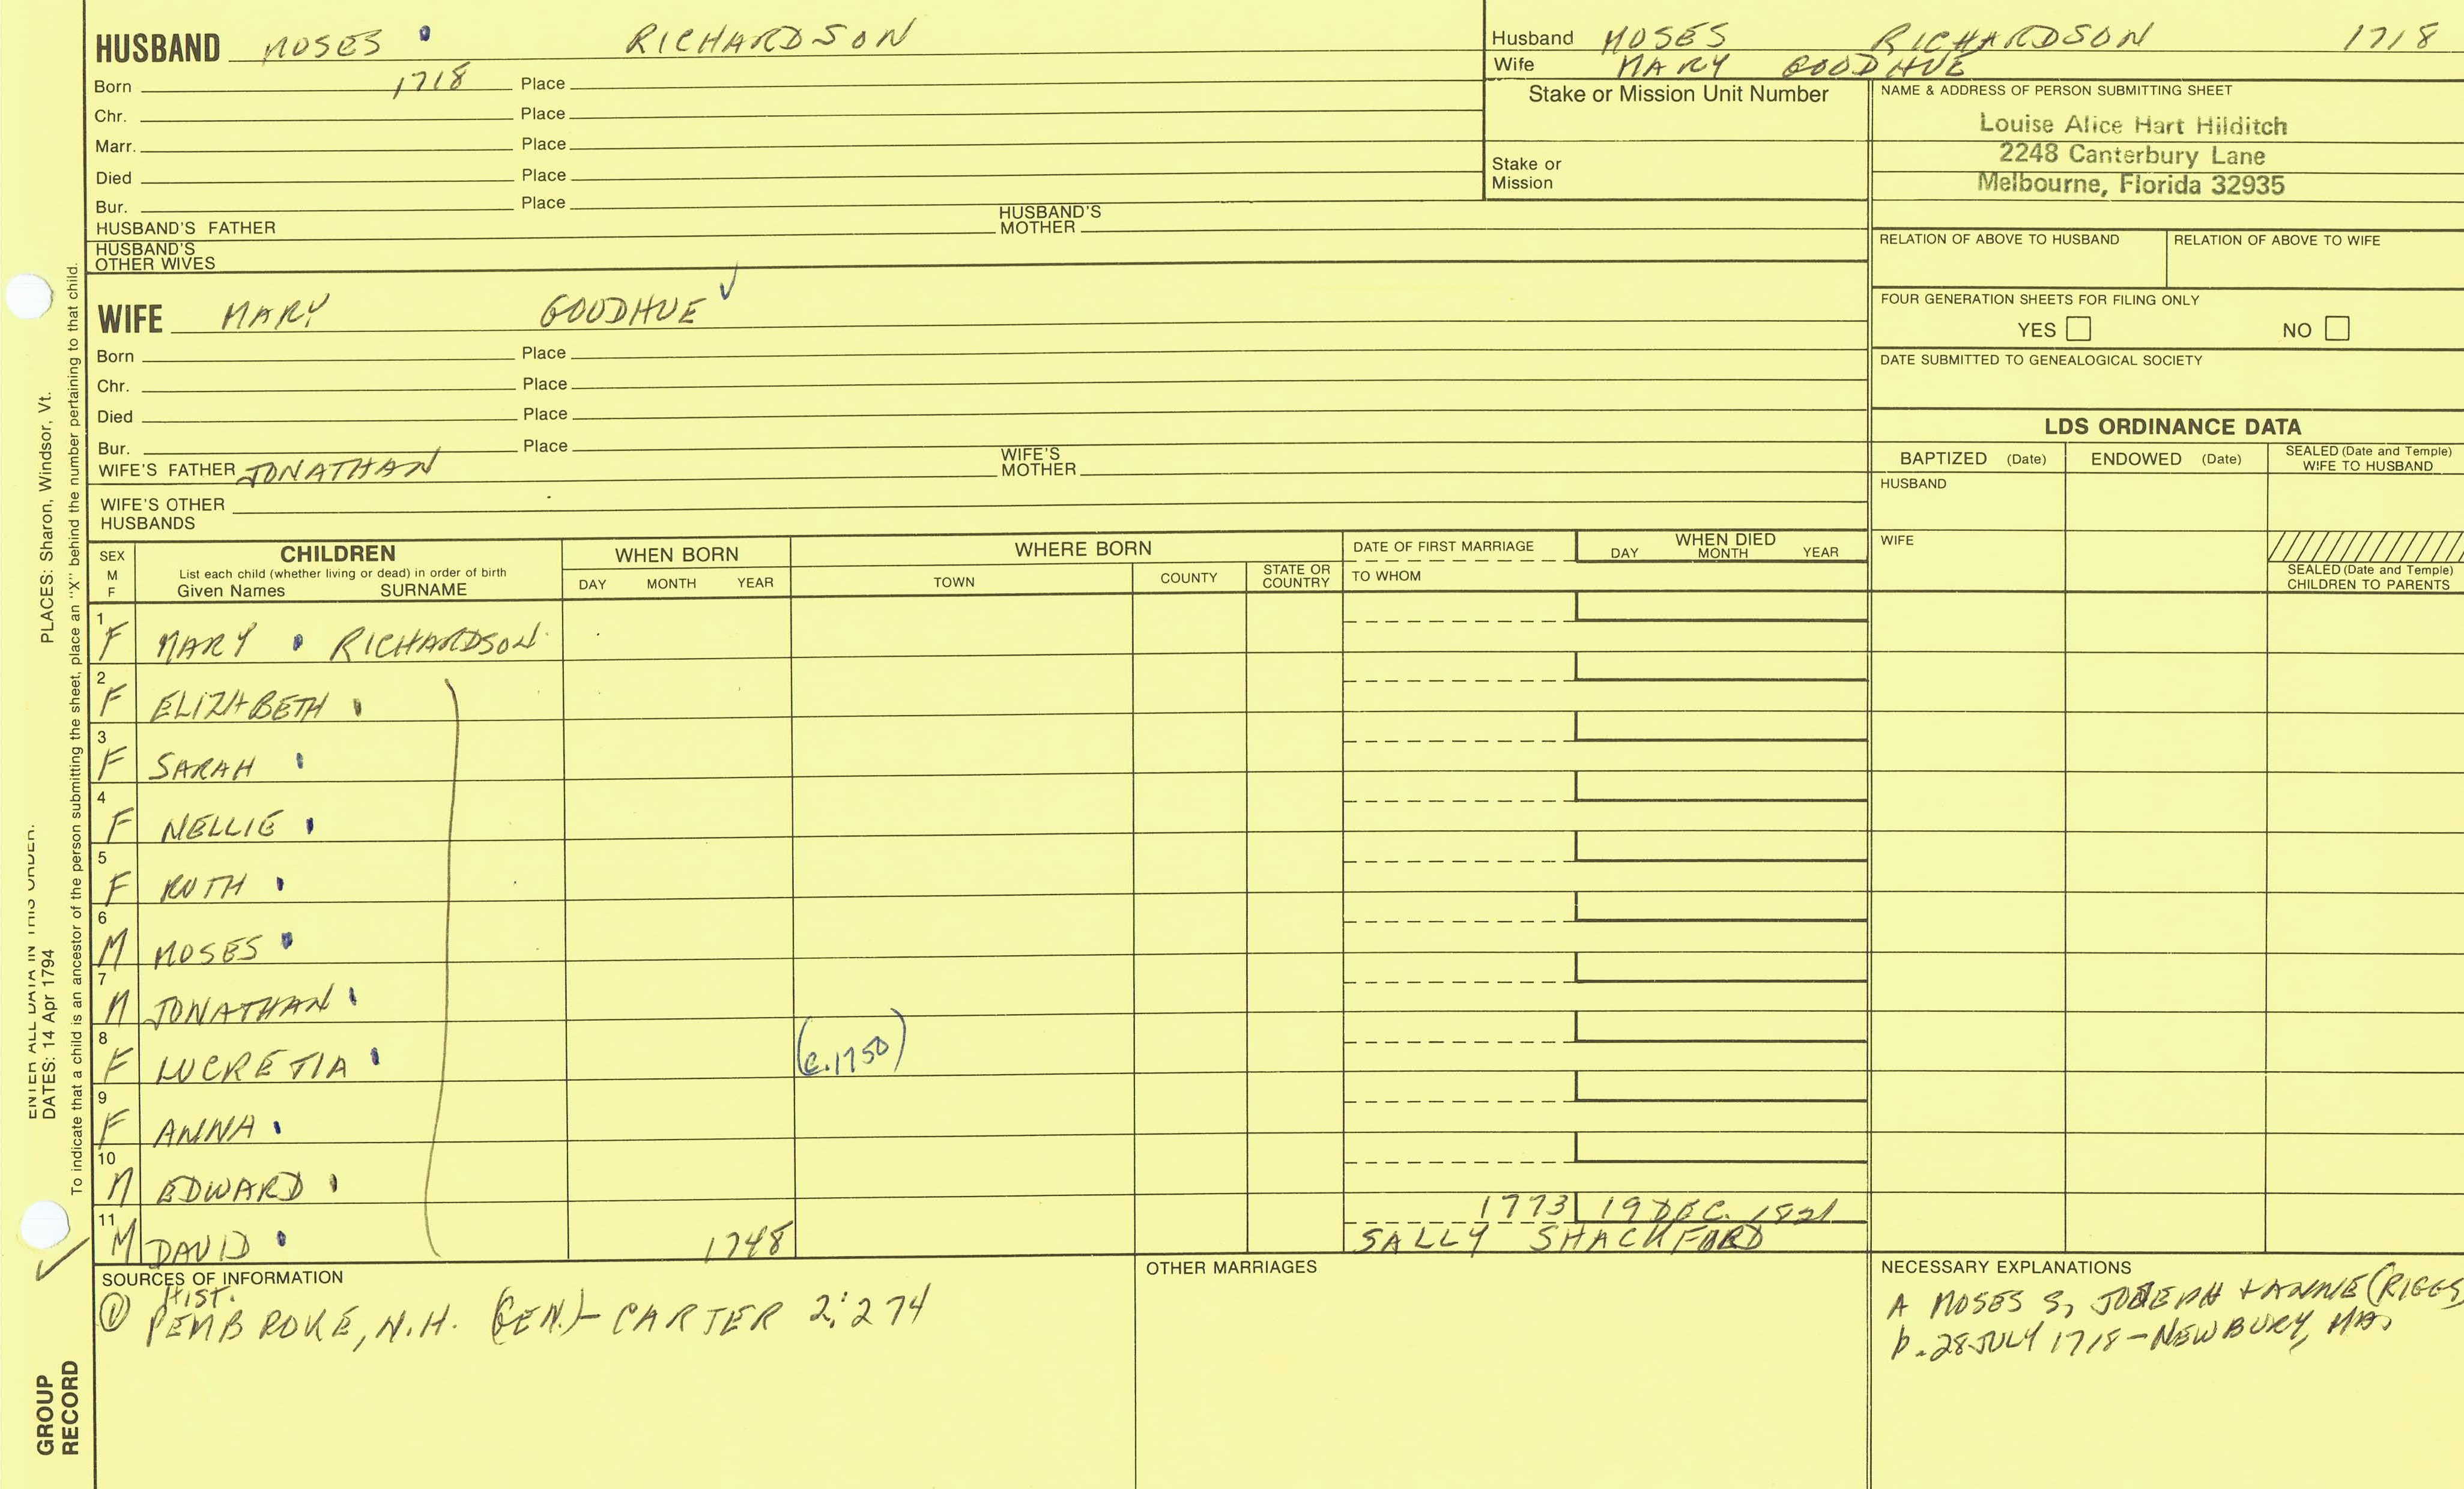 HUSBAND MOSES RICHARDSON
Born 1718 Place
Chr. Place
Marr. Place
Died Place
Bur. Place
HUSBAND'S FATHER HUSBAND'S MOTHER
HUSBAND'S OTHER WIVES
Husband MOSES RICHARDSON 1718
Wife MARY GOODHUE
Stake or Mission Unit Number
Stake or
Mission
NAME & ADDRESS OF PERSON SUBMITTING SHEET
Louise Alice Hart Hilditch
2248 Canterbury Lane
Melbourne, Florida 32935
RELATION OF ABOVE TO HUSBAND RELATION OF ABOVE TO WIFE
FOUR GENERATION SHEETS FOR FILING ONLY
YES NO
DATE SUBMITTED TO GENEALOGICAL SOCIETY
WIFE MARY GOODHUE
Born Place
Chr. Place
Died Place
Bur. Place
WIFE'S FATHER JONATHAN WIFE'S MOTHER
WIFE'S OTHER
HUSBANDS
LDS ORDINANCE DATA
BAPTIZED (Date) ENDOWED (Date) SEALED (Date and Temple) WIFE TO HUSBAND
HUSBAND
WIFE
SEALED (Date and Temple)
CHILDREN TO PARENTS
SEX
M
F
CHILDREN
List each child (whether living or dead) in order of birth
Given Names SURNAME
WHEN BORN
DAY MONTH YEAR
WHERE BORN
TOWN COUNTY STATE OR COUNTRY
DATE OF FIRST MARRIAGE
TO WHOM
WHEN DIED
DAY MONTH YEAR
1 F MARY RICHARDSON
2 F ELIZABETH
3 F SARAH
4 F NELLIE
5 F RUTH
6 M MOSES
7 M JONATHAN
8 F LUCRETIA (c.1750)
9 F ANNA
10 M EDWARD
11 M DAVID 1748 1773 19 DEC. 1821
SALLY SHACKFORD
SOURCES OF INFORMATION
Hist.
① PEMBROKE, N.H. (GEN.)- CARTER 2:274
OTHER MARRIAGES
NECESSARY EXPLANATIONS
A MOSES S, JOSEPH + ANNIE (RIGGS)
b. 28 JULY 1718 - NEWBURY, MA,
ENTER ALL DATA IN THIS ORDER:
DATES: 14 Apr 1794 PLACES: Sharon, Windsor, Vt.
To indicate that a child is an ancestor of the person submitting the sheet, place an "X" behind the number pertaining to that child.
GROUP
RECORD